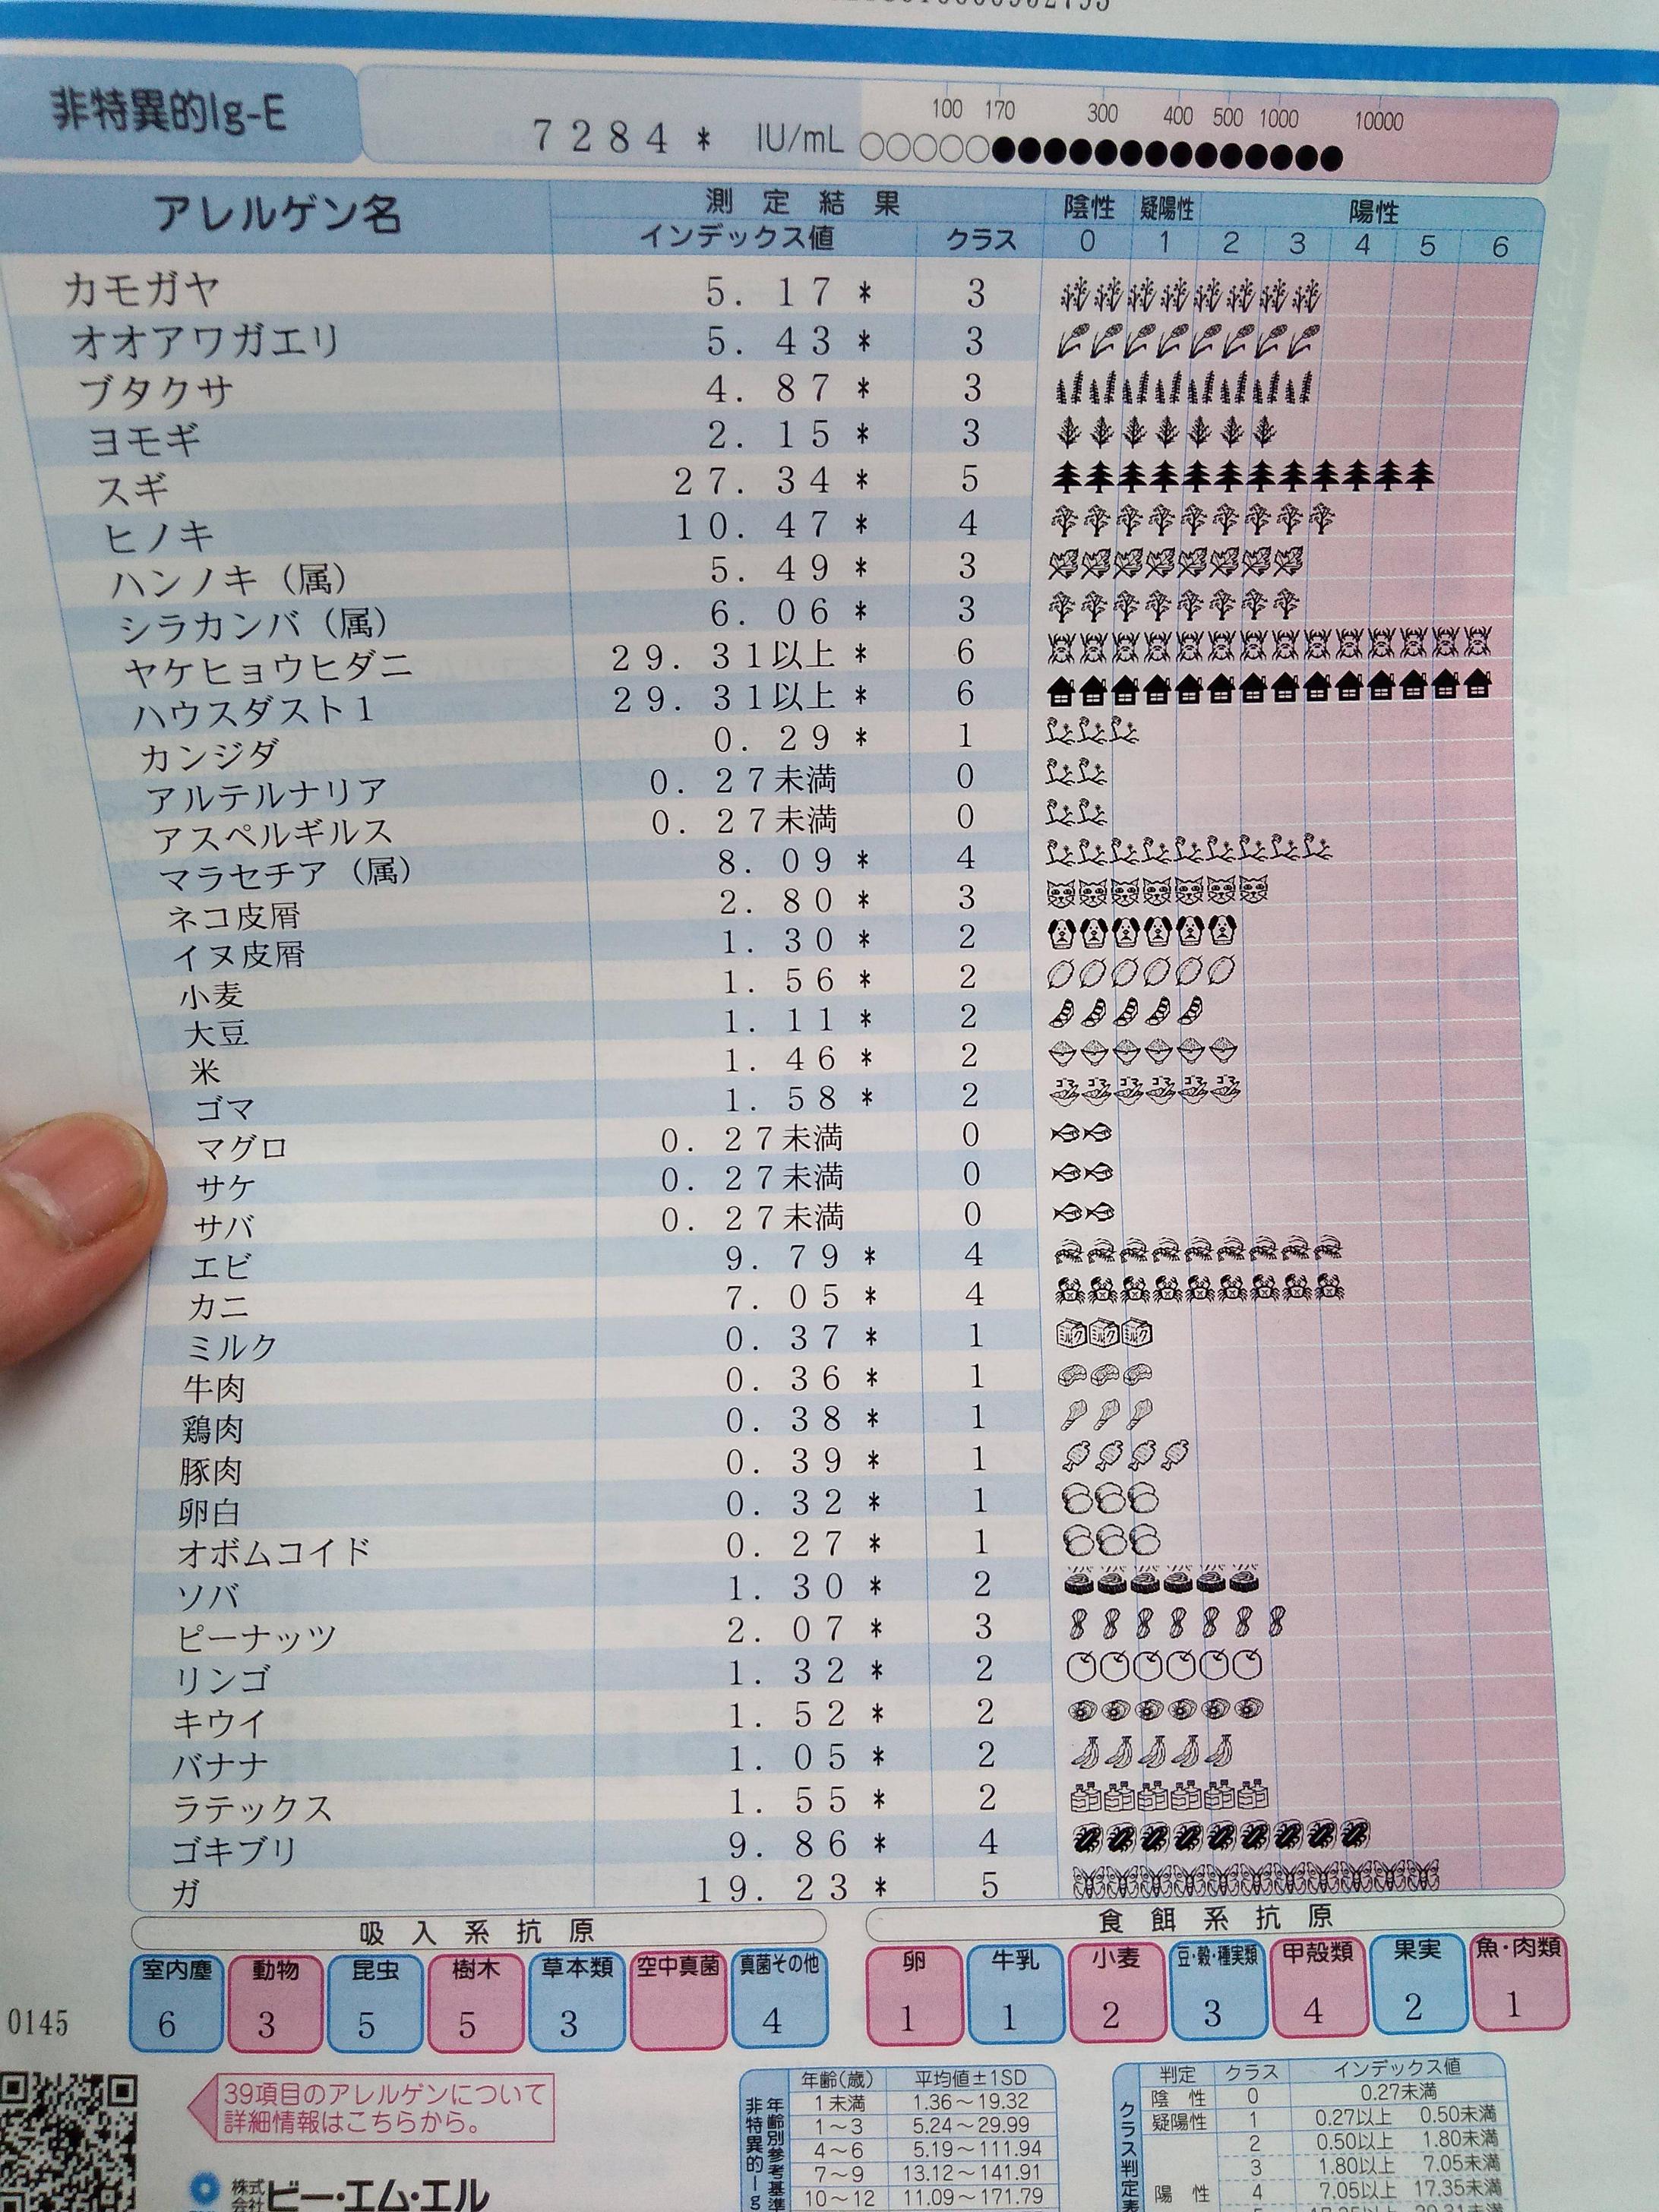 非特異的Ig-E 7284* IU/mL 100 170 300 400 500 1000 10000
アレルゲン名 測定結果 陰性 疑陽性 陽性
インデックス値 クラス 0 1 2 3 4 5 6
カモガヤ 5.17* 3
オオアワガエリ 5.43* 3
ブタクサ 4.87* 3
ヨモギ 2.15* 3
スギ 27.34* 5
ヒノキ 10.47* 4
ハンノキ（属） 5.49* 3
シラカンバ（属） 6.06* 3
ヤケヒョウヒダニ 29.31以上* 6
ハウスダスト1 29.31以上* 6
カンジダ 0.29* 1
アルテルナリア 0.27未満 0
アスペルギルス 0.27未満 0
マラセチア（属） 8.09* 4
ネコ皮屑 2.80* 3
イヌ皮屑 1.30* 2
小麦 1.56* 2
大豆 1.11* 2
米 1.46* 2
ゴマ 1.58* 2
マグロ 0.27未満 0
サケ 0.27未満 0
サバ 0.27未満 0
エビ 9.79* 4
カニ 7.05* 4
ミルク 0.37* 1
牛肉 0.36* 1
鶏肉 0.38* 1
豚肉 0.39* 1
卵白 0.32* 1
オボムコイド 0.27* 1
ソバ 1.30* 2
ピーナッツ 2.07* 3
リンゴ 1.32* 2
キウイ 1.52* 2
バナナ 1.05* 2
ラテックス 1.55* 2
ゴキブリ 9.86* 4
ガ 19.23* 5
吸入系抗原 食餌系抗原
室内塵 動物 昆虫 樹木 草本類 空中真菌 真菌その他 卵 牛乳 小麦 豆・穀・種実類 甲殻類 果実 魚・肉類
0145 6 3 5 5 3 4 1 1 2 3 4 2 1
39項目のアレルゲンについて
詳細情報はこちらから。
株式会社 ビー・エム・エル
年齢(歳) 平均値±1SD
1未満 1.36～19.32
1～3 5.24～29.99
4～6 5.19～111.94
7～9 13.12～141.91
10～12 11.09～171.79
判定 クラス インデックス値
陰性 0 0.27未満
疑陽性 1 0.27以上 0.50未満
2 0.50以上 1.80未満
3 1.80以上 7.05未満
陽性 4 7.05以上 17.35未満
クラス判定表